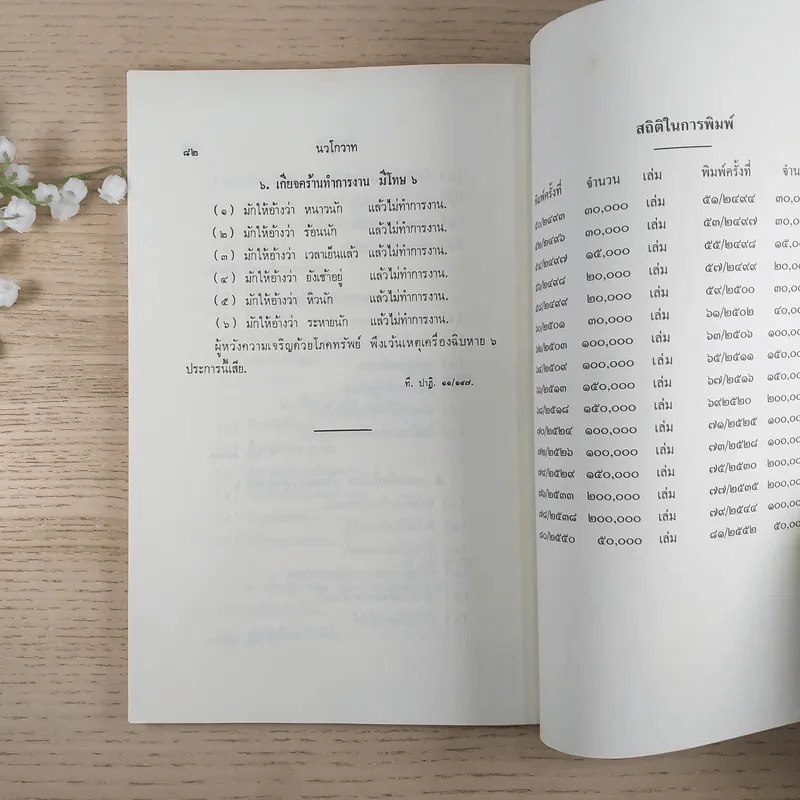 ๘๒ นวโกวาท
๖. เกียจคร้านทำการงาน มีโทษ ๖
(๑) มักให้อ้างว่า หนาวนัก แล้วไม่ทำการงาน.
(๒) มักให้อ้างว่า ร้อนนัก แล้วไม่ทำการงาน.
(๓) มักให้อ้างว่า เวลาเย็นแล้ว แล้วไม่ทำการงาน.
(๔) มักให้อ้างว่า ยังเช้าอยู่ แล้วไม่ทำการงาน.
(๕) มักให้อ้างว่า หิวนัก แล้วไม่ทำการงาน.
(๖) มักให้อ้างว่า ระหายนัก แล้วไม่ทำการงาน.
ผู้หวังความเจริญด้วยโภคทรัพย์ พึงเว้นเหตุเครื่องฉิบหาย ๖
ประการนี้เสีย.
ที. ปาฏิ. ๑๑/๑๙๗.
สถิติในการพิมพ์
พิมพ์ครั้งที่ จำนวน เล่ม พิมพ์ครั้งที่
๕๐/๒๔๙๓ ๓๐,๐๐๐ เล่ม ๕๑/๒๔๙๔
๕๒/๒๔๙๖ ๓๐,๐๐๐ เล่ม ๕๓/๒๔๙๗
๕๔/๒๔๙๗ ๑๕,๐๐๐ เล่ม ๕๕/๒๔๙๘
๕๖/๒๔๙๘ ๒๐,๐๐๐ เล่ม ๕๗/๒๔๙๙
๕๘/๒๔๙๙ ๒๐,๐๐๐ เล่ม ๕๙/๒๕๐๐
๖๐/๒๕๐๑ ๓๐,๐๐๐ เล่ม ๖๑/๒๕๐๒
๖๒/๒๕๐๓ ๑๐๐,๐๐๐ เล่ม ๖๓/๒๕๐๖
๖๔/๒๕๐๙ ๑๐๐,๐๐๐ เล่ม ๖๕/๒๕๑๑
๖๖/๒๕๑๓ ๑๕๐,๐๐๐ เล่ม ๖๗/๒๕๑๖
๖๘/๒๕๑๘ ๑๕๐,๐๐๐ เล่ม ๖๙๒๕๒๐
๗๐/๒๕๒๔ ๑๐๐,๐๐๐ เล่ม ๗๑/๒๕๒๕
๗๒/๒๕๒๖ ๑๐๐,๐๐๐ เล่ม ๗๓/๒๕๒๘
๗๔/๒๕๒๙ ๑๕๐,๐๐๐ เล่ม ๗๕/๒๕๓๐
๗๖/๒๕๓๓ ๒๐๐,๐๐๐ เล่ม ๗๗/๒๕๓๕
๗๘/๒๕๓๘ ๒๐๐,๐๐๐ เล่ม ๗๙/๒๕๔๔
๘๐/๒๕๕๐ ๕๐,๐๐๐ เล่ม ๘๑/๒๕๕๒